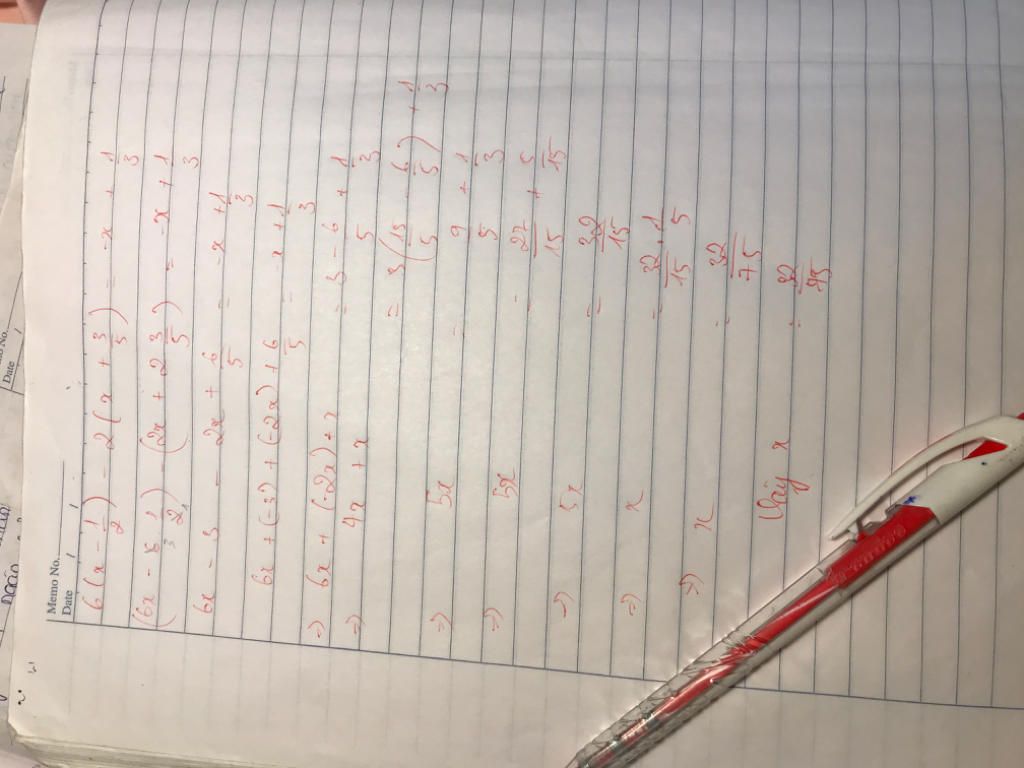 Memo No.
Date / /
6(x - 1/2) - 2(x + 3/5) = -x + 1/3
(6x - 6 1/2) - (2x + 2 3/5) = -x + 1/3
6x - 3 - 2x + 6/5 = -x + 1/3
6x + (-3) + (-2x) + 6/5 = -x + 1/3
=> 6x + (-2x) + x = 3 - 6/5 + 1/3
=> 4x + x = 3(15/5 - 6/5) + 1/3
=> 5x = 9/5 + 1/3
=> 5x = 27/15 + 5/15
=> 5x = 32/15
=> x = 32/15 . 1/5
=> x = 32/75
Vậy x = 32/75